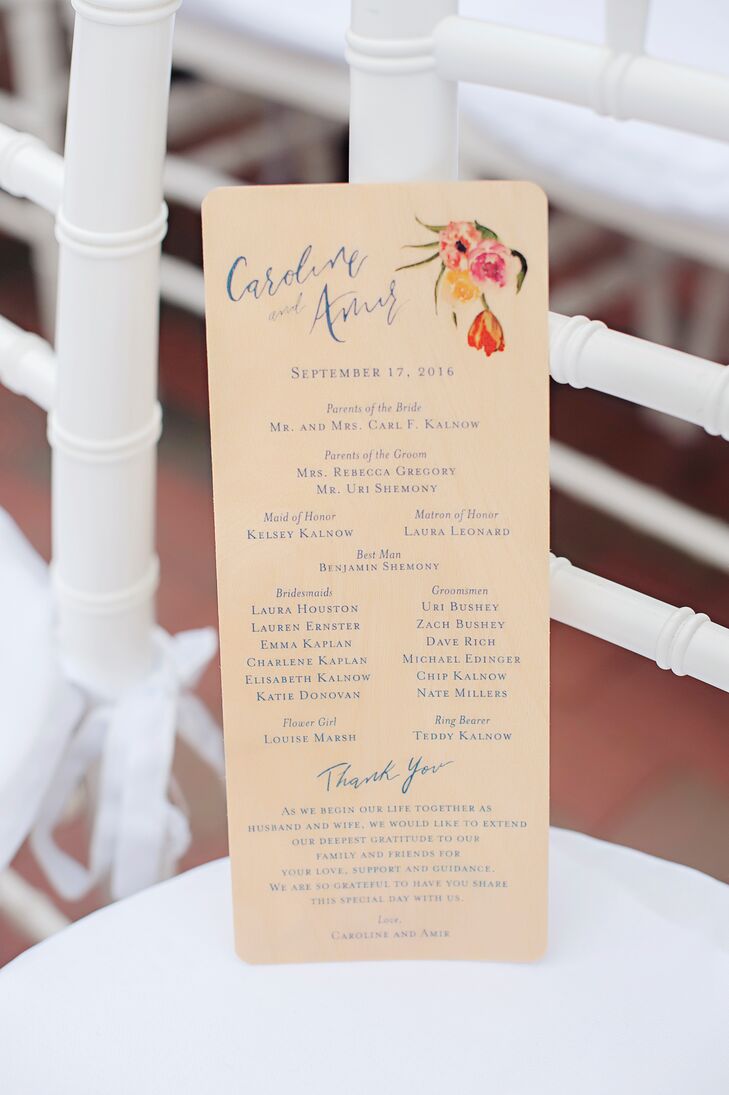 Caroline
and Amir
September 17, 2016
Parents of the Bride
Mr. and Mrs. Carl F. Kalnow
Parents of the Groom
Mrs. Rebecca Gregory
Mr. Uri Shemony
Maid of Honor
Kelsey Kalnow
Matron of Honor
Laura Leonard
Best Man
Benjamin Shemony
Bridesmaids
Laura Houston
Lauren Ernster
Emma Kaplan
Charlene Kaplan
Elisabeth Kalnow
Katie Donovan
Groomsmen
Uri Bushey
Zach Bushey
Dave Rich
Michael Edinger
Chip Kalnow
Nate Millers
Flower Girl
Louise Marsh
Ring Bearer
Teddy Kalnow
Thank You
As we begin our life together as
husband and wife, we would like to extend
our deepest gratitude to our
family and friends for
your love, support and guidance.
We are so grateful to have you share
this special day with us.
Love,
Caroline and Amir